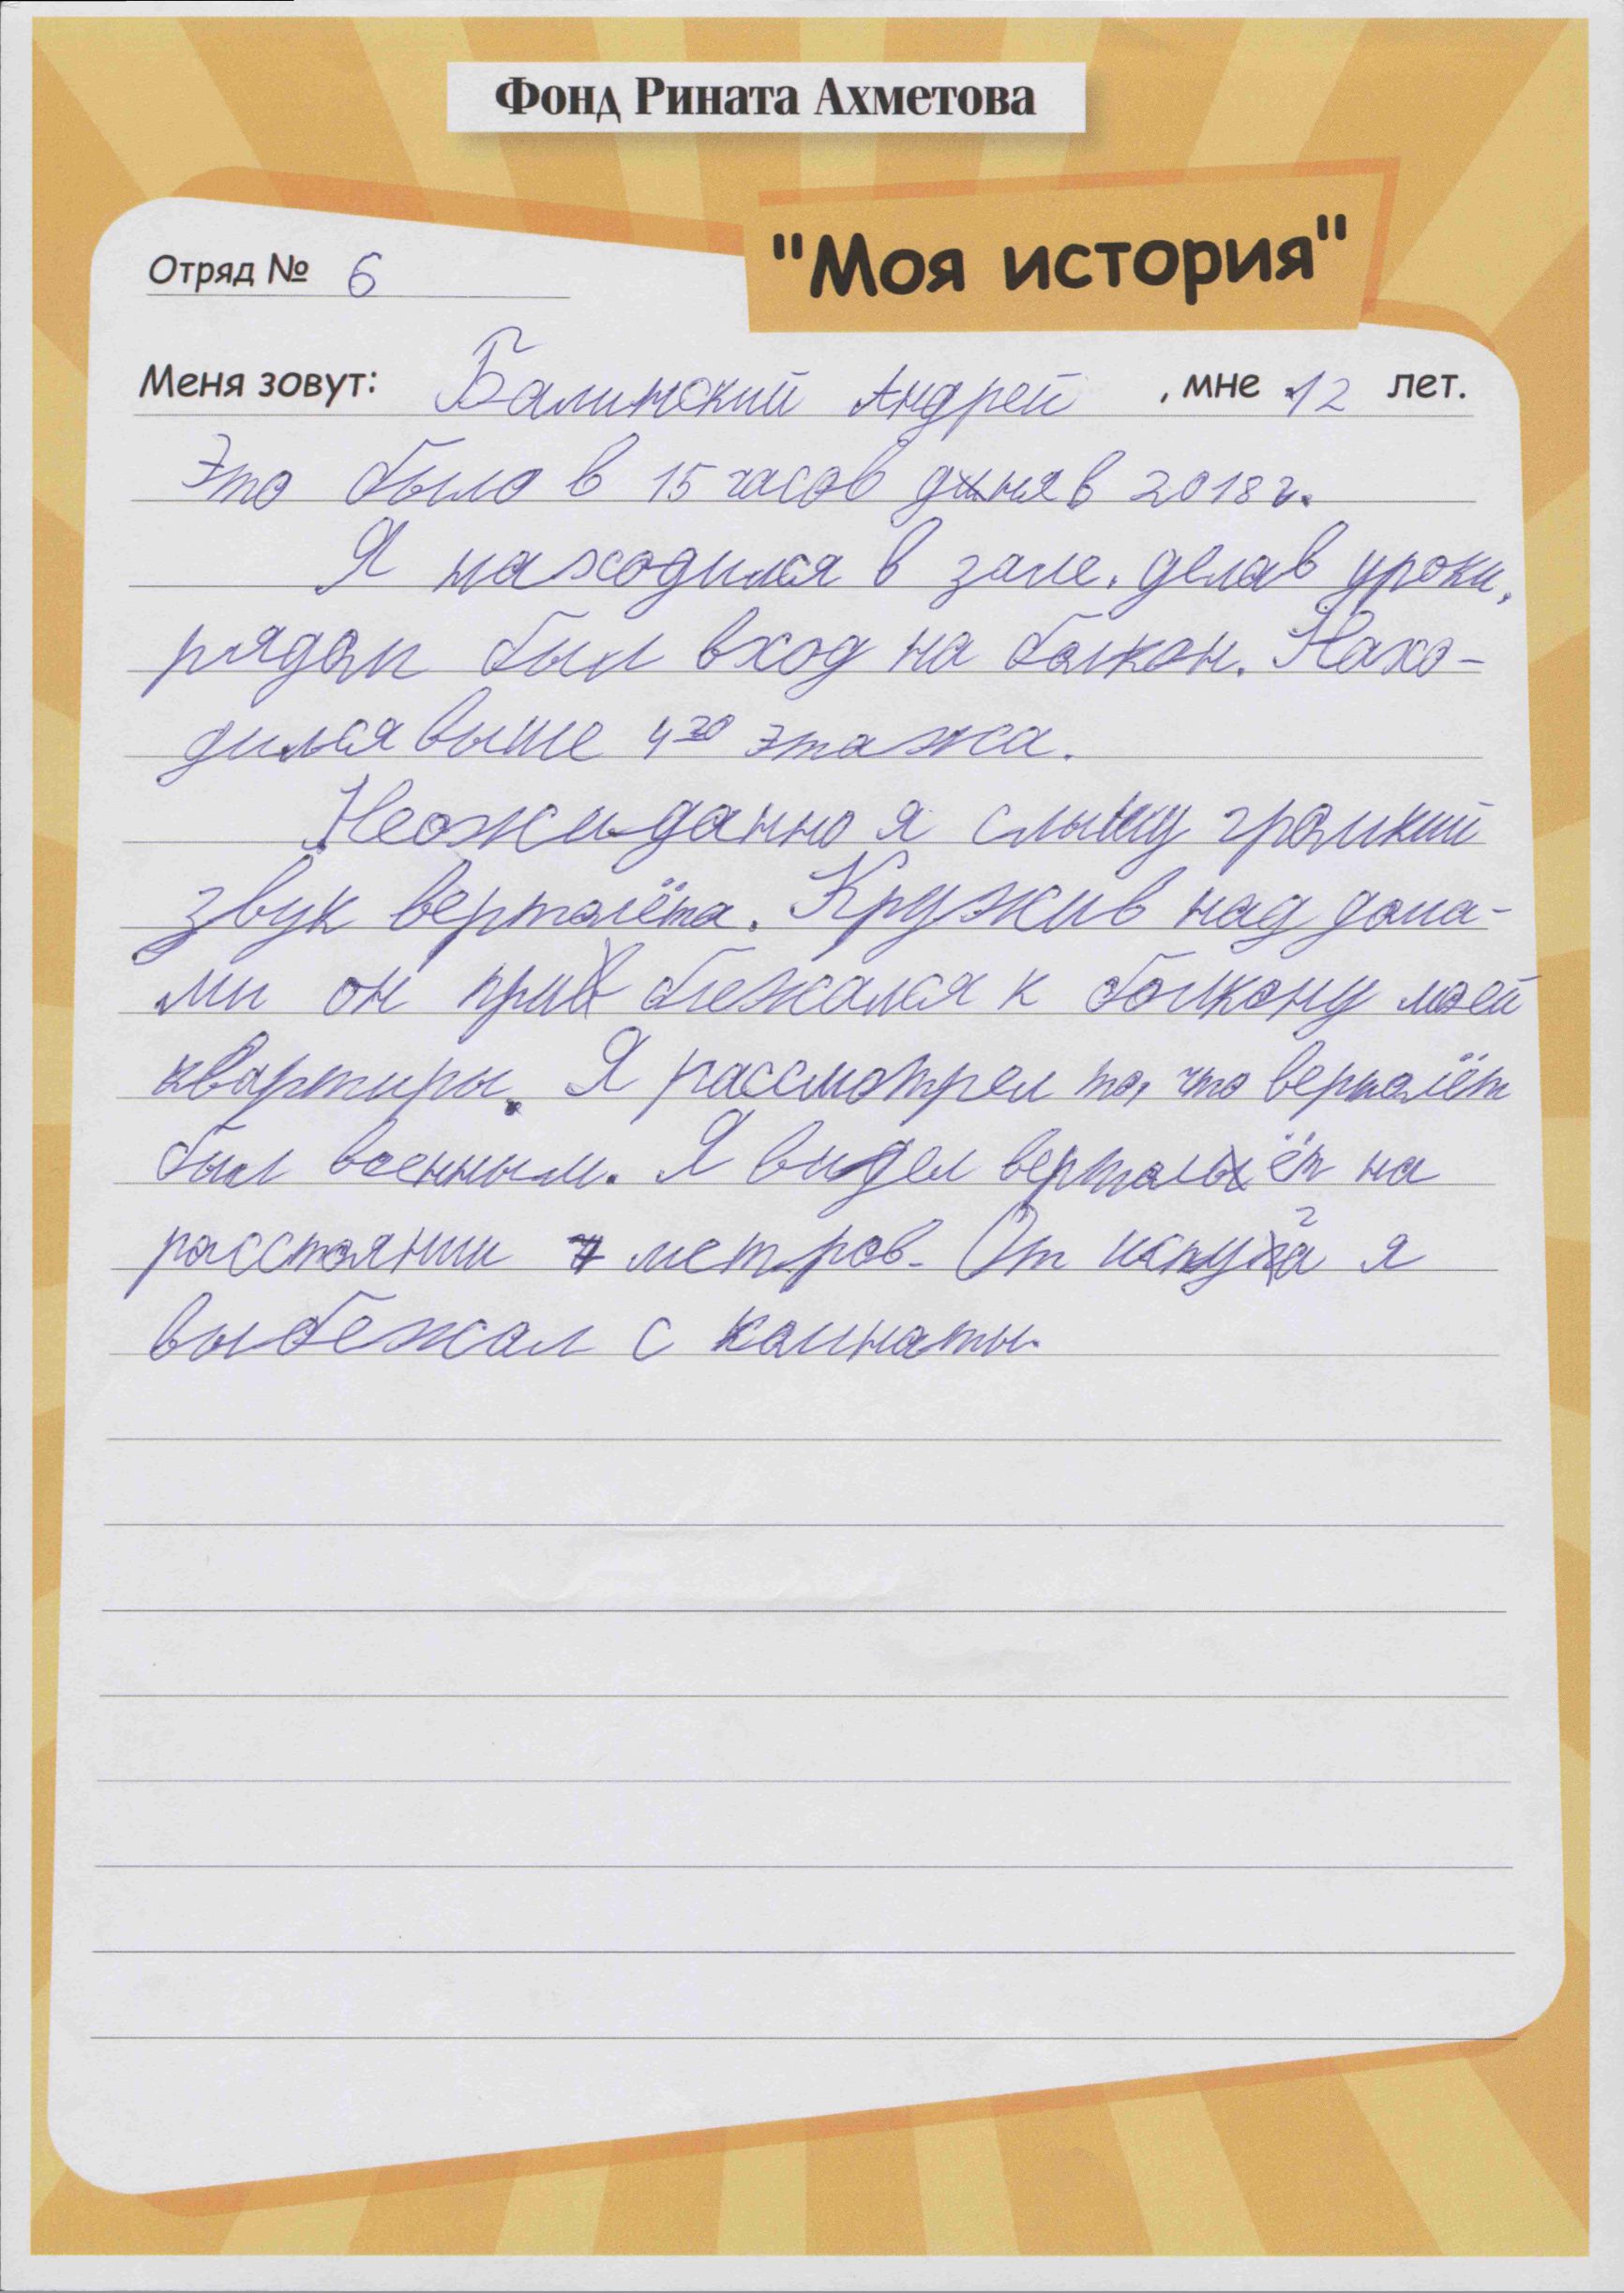 Фонд Рината Ахметова
"Моя история"
Отряд № 6
Меня зовут: Балинский Андрей , мне 12 лет.
Это было в 15 часов дня в 2018 г.
Я находился в зале, делав уроки,
рядом был вход на балкон. Нахо-
дился выше 4го этажа.
Неожиданно я слышу громкий
звук вертолёта. Кружив над дома-
ми он приближался к балкону моей
квартиры. Я рассмотрел то, что вертолёт
был военным. Я видел вертолёт на
расстоянии 7 метров. От испуга я
выбежал с комнаты.